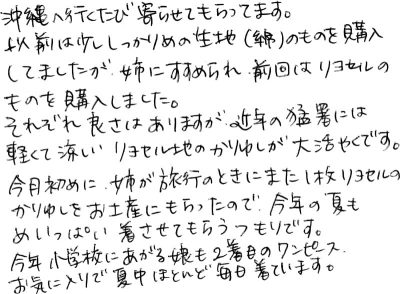 沖縄へ行くたび寄らせてもらってます。
以前は少ししっかりめの生地(綿)のものを購入
してましたが、姉にすすめられ、前回はリヨセルの
ものを購入しました。
それぞれ良さはありますが、近年の猛暑には
軽くて涼しいリヨセル地のかりゆしが大活やくです。
今月初めに、姉が旅行のときにまた1枚リヨセルの
かりゆしをお土産にもらったので、今年の夏も
めいっぱい着させてもらうつもりです。
今年小学校にあがる娘も2着目のワンピース、
お気に入りで夏中ほとんど毎日着ています。